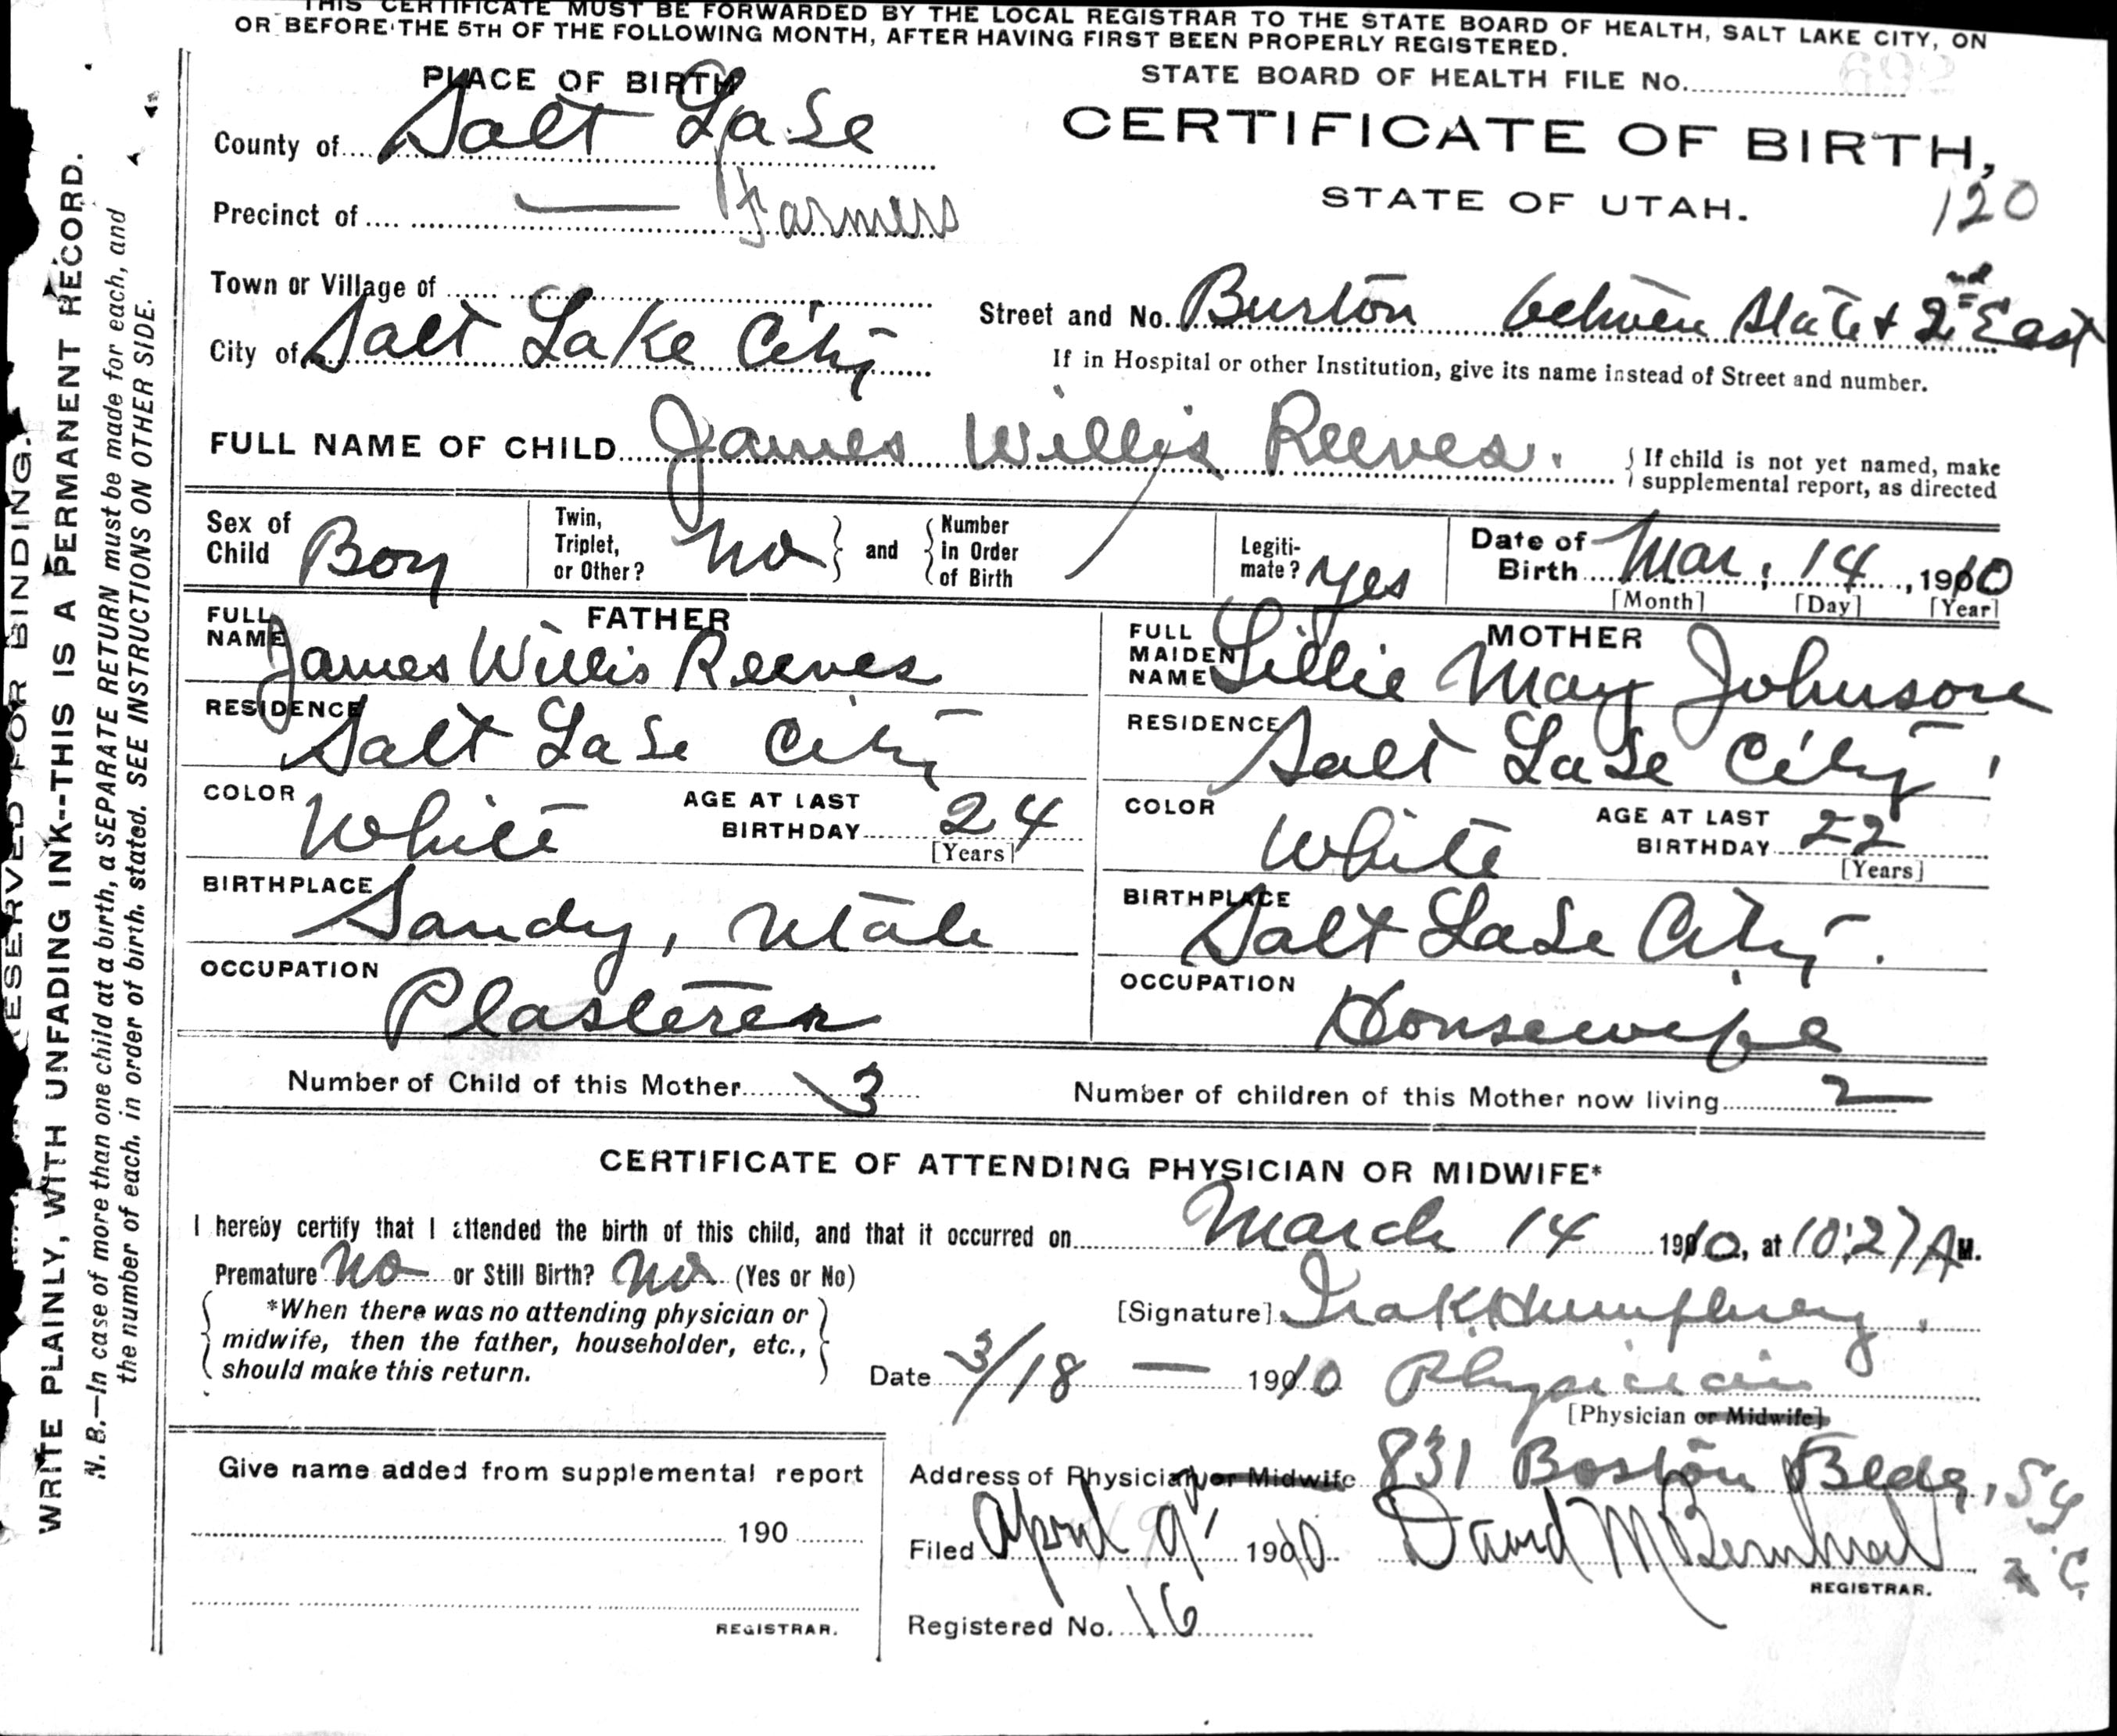 THIS CERTIFICATE MUST BE FORWARDED BY THE LOCAL REGISTRAR TO THE STATE BOARD OF HEALTH, SALT LAKE CITY, ON
OR BEFORE THE 5TH OF THE FOLLOWING MONTH, AFTER HAVING FIRST BEEN PROPERLY REGISTERED.
PLACE OF BIRTH
STATE BOARD OF HEALTH FILE No.
County of Salt Lake
CERTIFICATE OF BIRTH,
STATE OF UTAH.
120
Precinct of — Farmers
Town or Village of
City of Salt Lake City
Street and No. Burton between State & 2nd East
If in Hospital or other Institution, give its name instead of Street and number.
FULL NAME OF CHILD James Willis Reeves.
If child is not yet named, make
supplemental report, as directed
Sex of Child Boy
Twin, Triplet, or Other? No and Number in Order of Birth
Legiti-mate? Yes
Date of Birth Mar. 14, 1910
[Month] [Day] [Year]
FATHER
FULL NAME James Willis Reeves
RESIDENCE Salt Lake City
COLOR White AGE AT LAST BIRTHDAY 24
[Years]
BIRTHPLACE Sandy, Utah
OCCUPATION Plasterer
MOTHER
FULL MAIDEN NAME Lillie May Johnson
RESIDENCE Salt Lake City
COLOR White AGE AT LAST BIRTHDAY 22
[Years]
BIRTHPLACE Salt Lake City.
OCCUPATION Housewife
Number of Child of this Mother 3
Number of children of this Mother now living 2
CERTIFICATE OF ATTENDING PHYSICIAN OR MIDWIFE*
I hereby certify that I attended the birth of this child, and that it occurred on March 14 1910, at 10:27 A M.
Premature No or Still Birth? No (Yes or No)
*When there was no attending physician or
midwife, then the father, householder, etc.,
should make this return.
[Signature] Ira K. Humphrey
Date 3/18 — 1910 Physician
[Physician or Midwife]
Give name added from supplemental report
190
REGISTRAR.
Address of Physician or Midwife 831 Boston Bldg,
Filed April 9 1910.
REGISTRAR.
Registered No. 16
RESERVED FOR BINDING.
WRITE PLAINLY, WITH UNFADING INK--THIS IS A PERMANENT RECORD.
N. B.—In case of more than one child at a birth, a SEPARATE RETURN must be made for each, and
the number of each, in order of birth, stated. SEE INSTRUCTIONS ON OTHER SIDE.